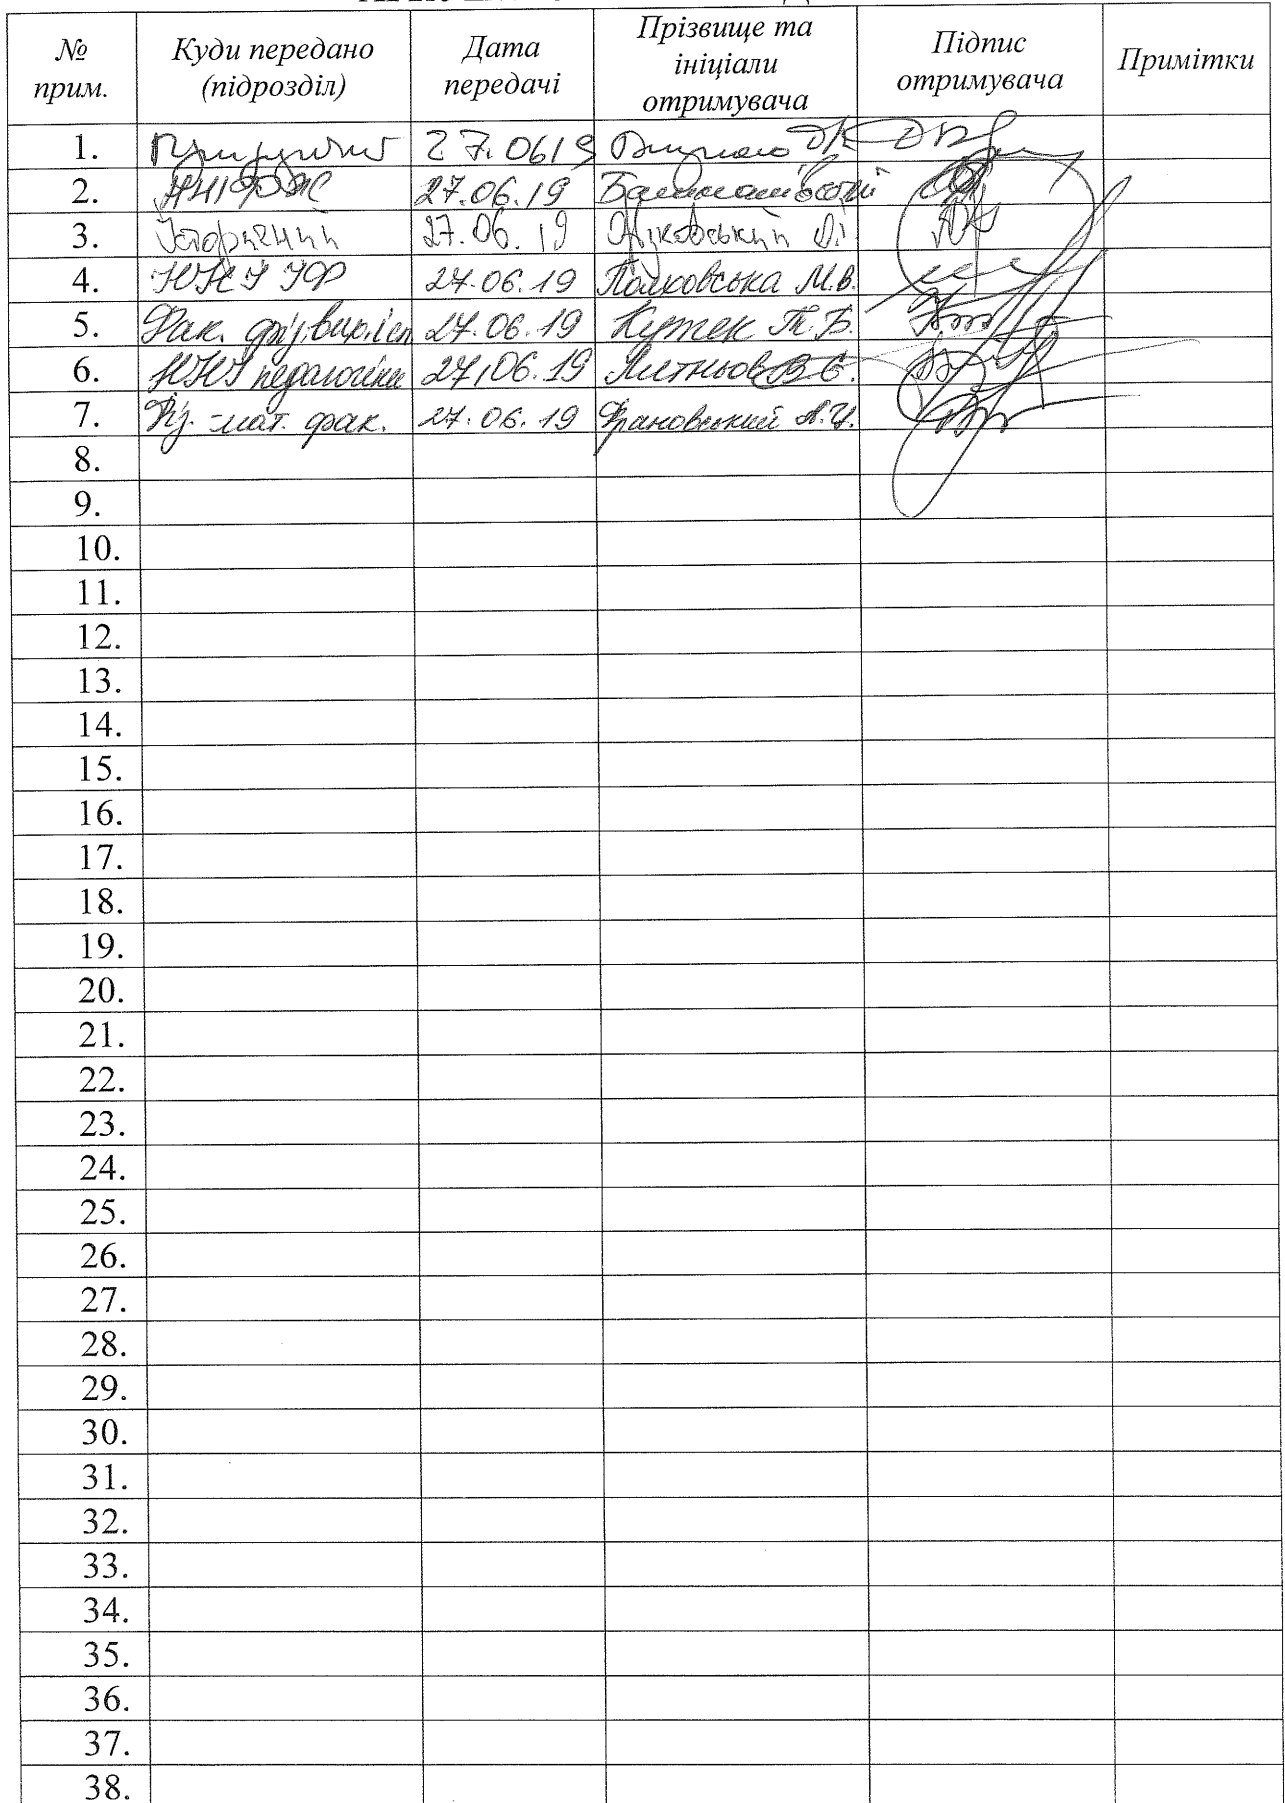 № прим. Куди передано (підрозділ) Дата передачі Прізвище та ініціали отримувача Підпис отримувача Примітки
1. 27.0619
2. 27.06.19
3. Історичний 27.06.19
4. 27.06.19 М.В.
5. Фак. 27.06.19 Кутек Т.Б.
6. ННІ педагогіки 27.06.19
7. Фіз.-мат. фак. 27.06.19 Франовський А.Ц.
8.
9.
10.
11.
12.
13.
14.
15.
16.
17.
18.
19.
20.
21.
22.
23.
24.
25.
26.
27.
28.
29.
30.
31.
32.
33.
34.
35.
36.
37.
38.